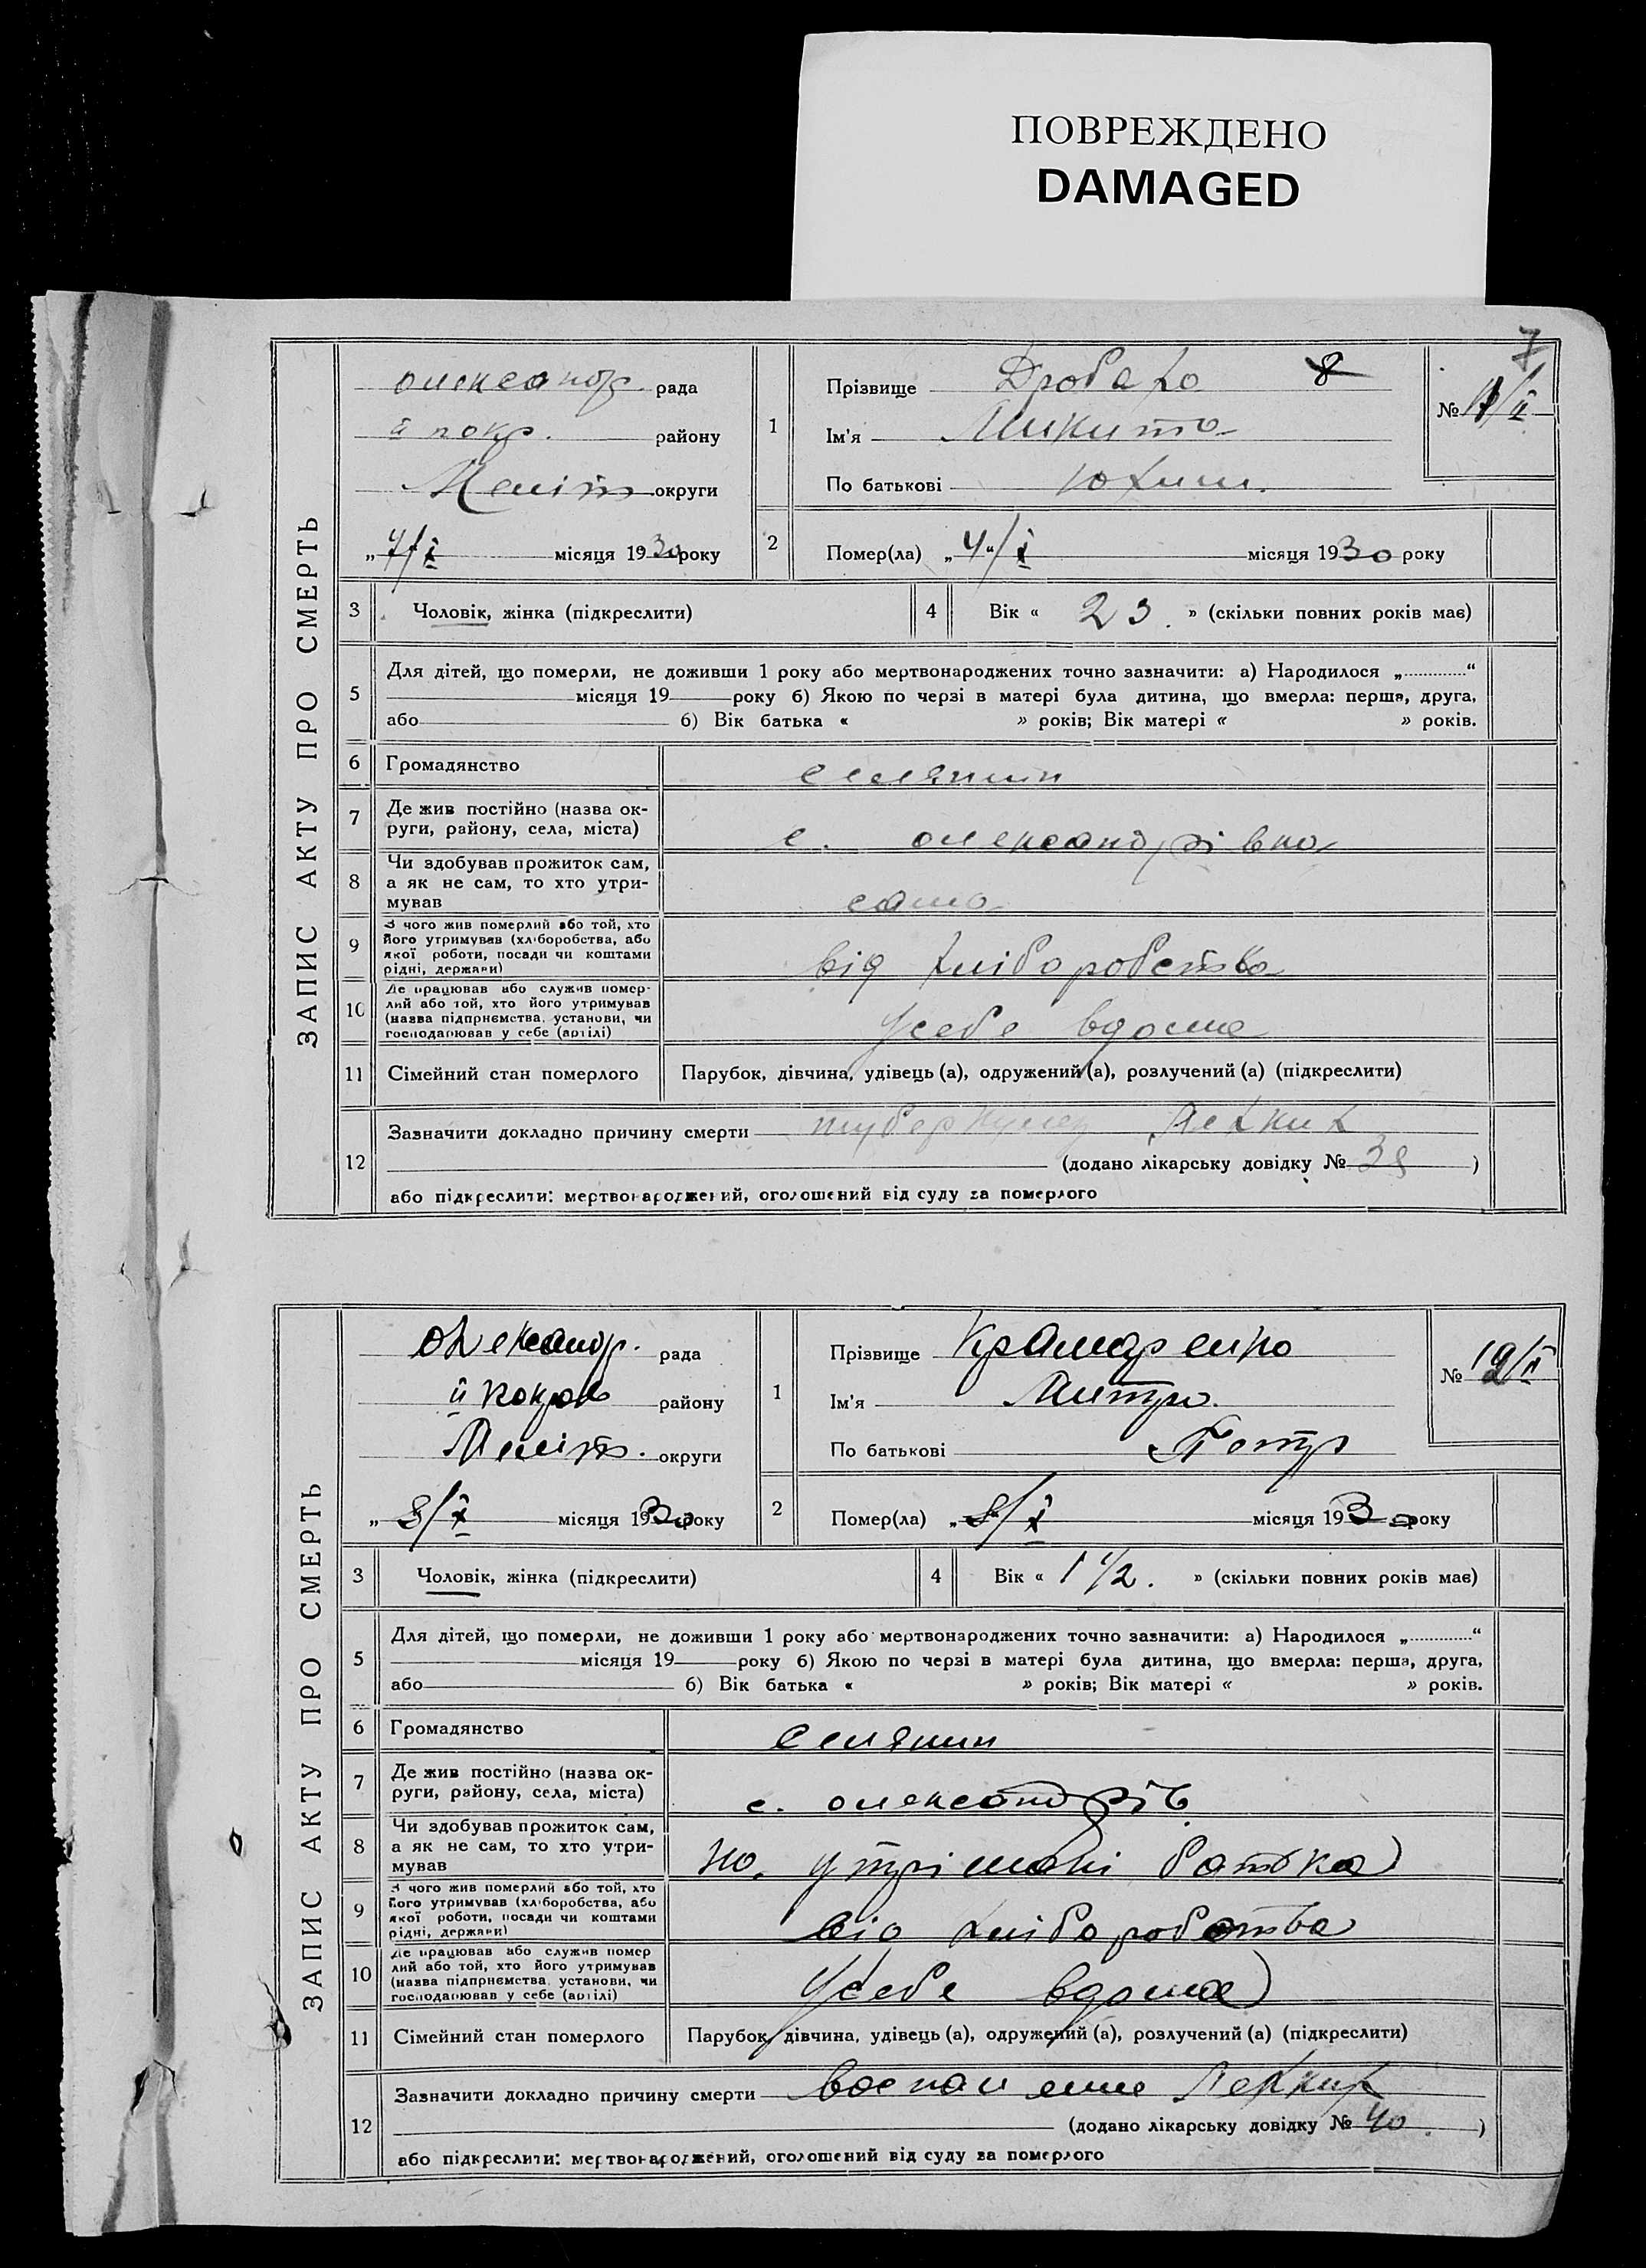 ПОВРЕЖДЕНО
DAMAGED
7
ЗАПИС АКТУ ПРО СМЕРТЬ
олександр. рада
й покр. району
Меліт. округи
„ місяця 1930 року
1
Прізвище 8
Ім'я Микита
По батькові Юхим.
№ /II
2
Помер(ла) „ місяця 1930 року
3 Чоловік, жінка (підкреслити)
4 Вік « 23. » (скільки повних років має)
5
Для дітей, що померли, не доживши 1 року або мертвонароджених точно зазначити: а) Народилося „............“
місяця 19 року б) Якою по черзі в матері була дитина, що вмерла: перша, друга,
або б) Вік батька « » років; Вік матері « » років.
6 Громадянство селянин
7 Де жив постійно (назва ок-
руги, району, села, міста) с. олександрівка
8 Чи здобував прожиток сам,
а як не сам, то хто утри-
мував само
9 З чого жив померлий або той, хто
його утримував (хліборобства, або
якої роботи, посади чи коштами
рідні, держави) від хліборобства
10 Де працював або служив помер-
лий або той, хто його утримував
(назва підприємства, установи, чи
господарював у себе (артілі) У себе вдома
11 Сімейний стан померлого Парубок, дівчина, удівець (а), одружений (а), розлучений (а) (підкреслити)
12
Зазначити докладно причину смерти туберкулез легких
(додано лікарську довідку № )
або підкреслити: мертвонароджений, оголошений від суду за померлого
ЗАПИС АКТУ ПРО СМЕРТЬ
Олександр. рада
й покров району
Меліт. округи
„ 8/X місяця 1930 року
1
Прізвище Крамаренко
Ім'я Митро.
По батькові Петр
№ /II
2
Помер(ла) „ 8/X місяця 1930 року
3 Чоловік, жінка (підкреслити)
4 Вік « 1 1/2. » (скільки повних років має)
5
Для дітей, що померли, не доживши 1 року або мертвонароджених точно зазначити: а) Народилося „............“
місяця 19 року б) Якою по черзі в матері була дитина, що вмерла: перша, друга,
або б) Вік батька « » років; Вік матері « » років.
6 Громадянство селянин
7 Де жив постійно (назва ок-
руги, району, села, міста) с. олександрів.
8 Чи здобував прожиток сам,
а як не сам, то хто утри-
мував на утрімані батька
9 З чого жив померлий або той, хто
його утримував (хліборобства, або
якої роботи, посади чи коштами
рідні, держави) від хліборобства
10 Де працював або служив помер
лий або той, хто його утримував
(назва підприємства, установи, чи
господарював у себе (артілі) У себе вдома
11 Сімейний стан померлого Парубок, дівчина, удівець (а), одружений (а), розлучений (а) (підкреслити)
12
Зазначити докладно причину смерти воспаление Легких
(додано лікарську довідку № 40. )
або підкреслити: мертвонароджений, оголошений від суду за померлого